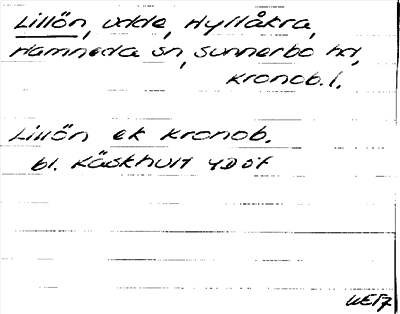 Lillön, udde, Hyllåkra,
Hamneda sn, Sunnerbo hd,
Kronob. l.
Lillön ek Kronob.
bl. Käskhult 4D5f